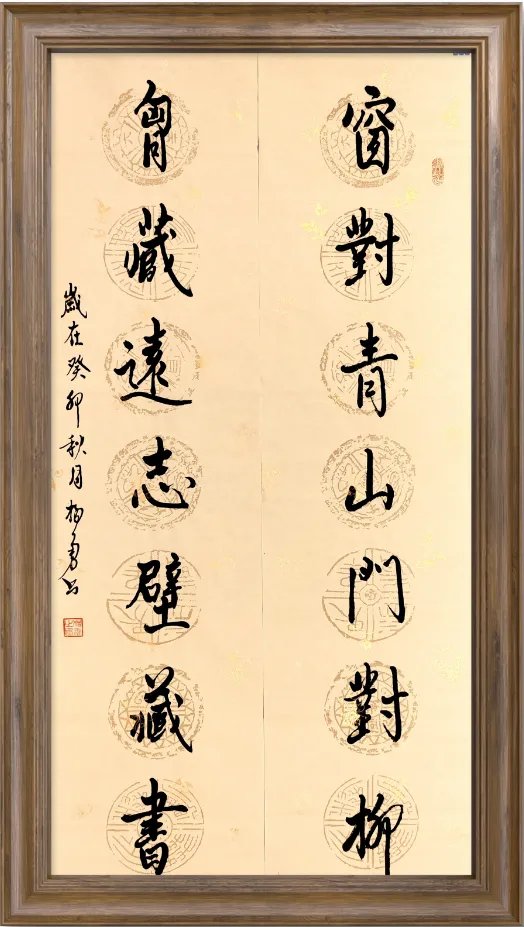 窗對青山門對柳
胷藏遠志壁藏書
歲在癸卯秋月楊勇书